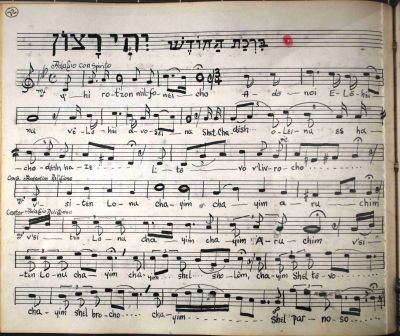 ברכת החודש יהי רצון
Adagio con Spirito
y' hi ro-tzon mil-fo-nei cho A-do-noi E-Lō-hei
nu vē-Lō-hei a-vō-sei na Shet Cha-dēsh o-Lei-nu es ha
cho-desh ha-ze L'to vo v'liv-ro-cho
v'si-ten Lo-nu cha-yim cha-yim a ru chim
v'si ten Lo-nu cha-yim cha-yim A-ru chim v'si
ten Lo-nu cha-yim shel sho-Lōm, cha-yim Shel to-vo
cha-yim Shel bro-cho cha-yim Shel par-no-so